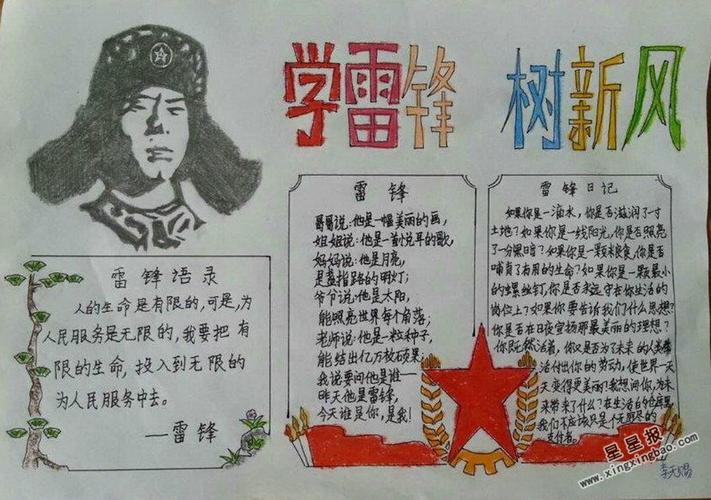 学雷锋 树新风
雷锋语录
人的生命是有限的,可是,为
人民服务是无限的,我要把有
限的生命,投入到无限的
为人民服务中去。
—雷锋
雷锋
哥哥说:他是一幅美丽的画,
姐姐说:他是一首悦耳的歌,
妈妈说:他是月亮,
是盏指路的明灯;
爷爷说:他是太阳,
能照亮世界每个角落;
老师说:他是一粒种子,
能结出亿万颗硕果;
我说要问他是谁—
昨天他是雷锋,
今天谁是你,是我!
雷锋日记
如果你是一滴水,你是否滋润了一寸
土地?如果你是一线阳光,你是否照亮
了一分黑暗?如果你是一颗粮食,你是否
哺育了有用的生命?如果你是一颗最小
的螺丝钉,你是否永远守在你生活的
岗位上?如果你要告诉我们什么思想?
你是否在日夜宣扬那最美丽的理想?
你既然活着,你又是否为了未来的人类
活付出你的劳动,使世界一天
天变得更美丽?我想问你,为未
来带来了什么?在生活的仓库里
我们不应该只是个无穷尽的
支付者。
星星报
www.xingxingbao.com